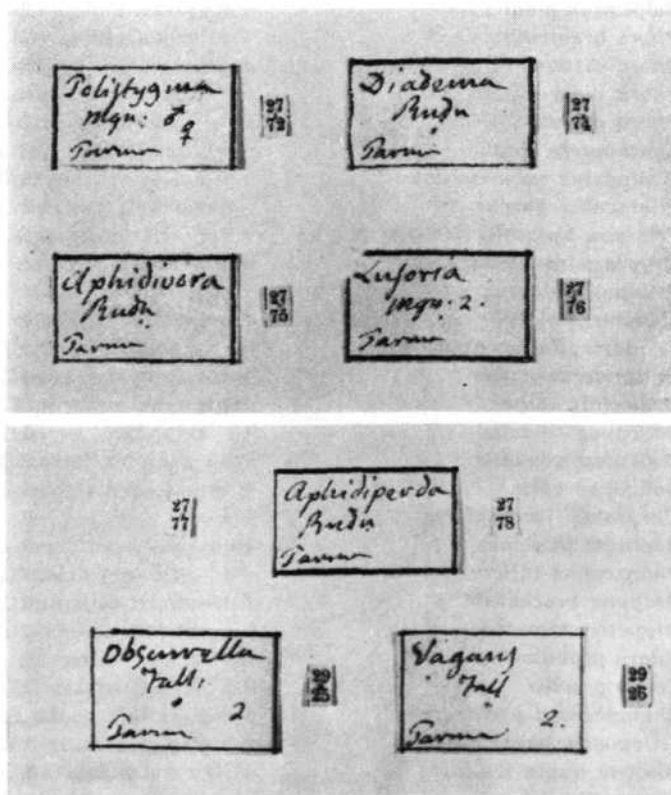 Polistygma
mgn: ♂
♀
Parma
27
72
Diadema
Rndn
Parma
27
74
Aphidivora
Rndn
Parma
27
75
Lusoria
mgn: 2.
Parma
27
76
27
77
Aphidiperda
Rndn
Parma
27
78
Obscurella
Fall:
2
Parma
29
25
Vagans
Fall
2.
Parma
29
26